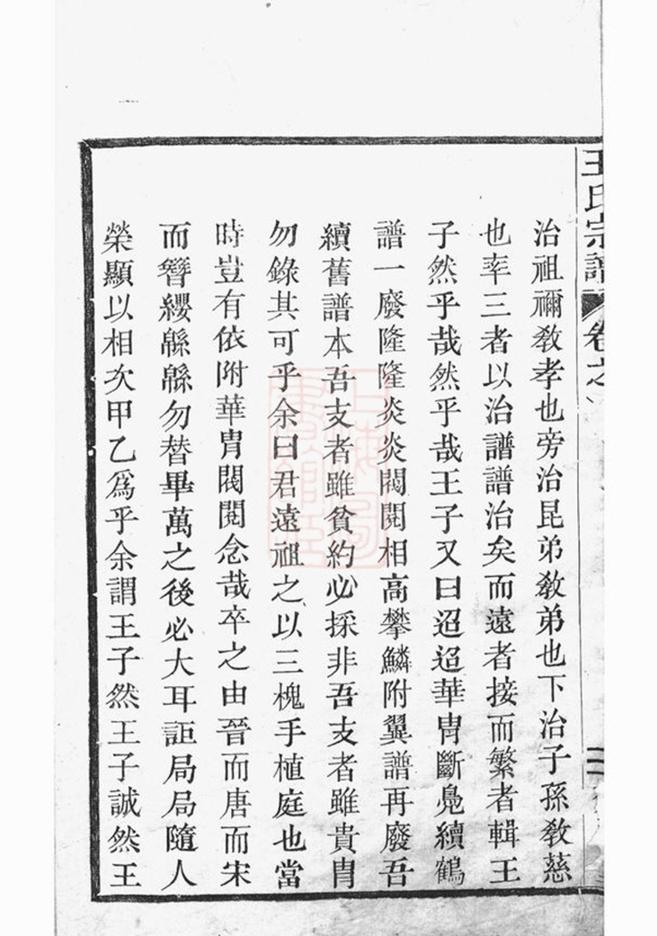 王氏宗譜
卷之
治祖禰敎孝也旁治昆弟敎弟也下治子孫敎慈
也率三者以治譜譜治矣而遠者接而繁者輯王
子然乎哉然乎哉王子又曰迢迢華胄斷鳧續鶴
譜一廢隆隆炎炎閥閱相高攀鱗附翼譜再廢吾
續舊譜本吾支者雖貧約必採非吾支者雖貴胄
勿錄其可乎余曰君遠祖之以三槐手植庭也當
時豈有依附華胄閥閱念哉卒之由晉而唐而宋
而簪纓緜緜勿替畢萬之後必大耳詎局局隨人
榮顯以相次甲乙爲乎余謂王子然王子誠然王